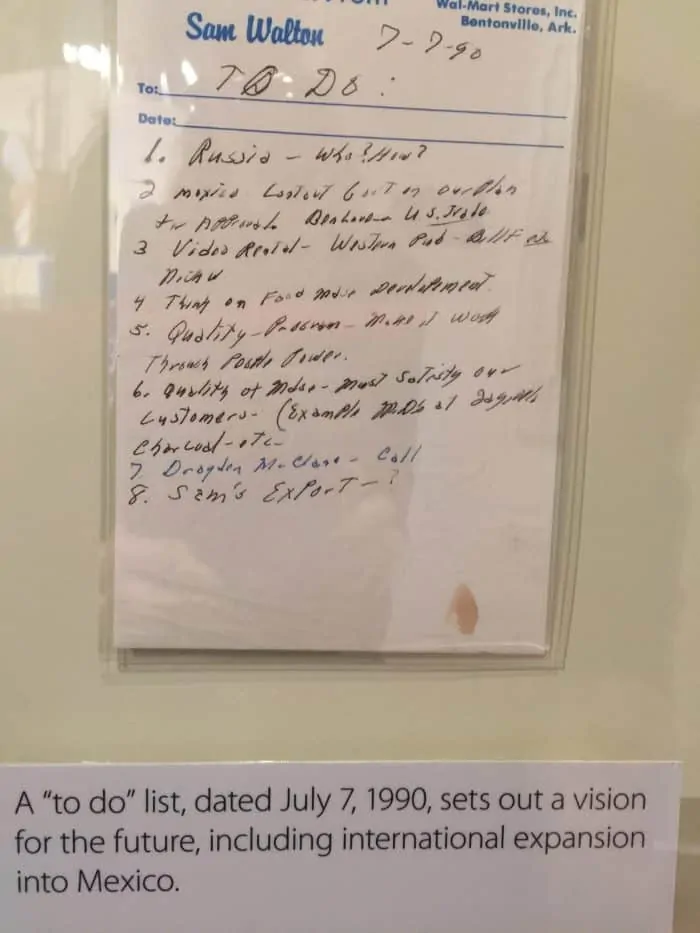 Wal-Mart Stores, Inc.
Sam Walton
Bentonville, Ark.
7-7-90
To: TO DO:
Date:
1. Russia - Who? How?
2 Mexico our Plan
for Approval U.S. Trade
3 Video Rental - Western Pub -
4 Think on Food Mdse Development.
5. Quality Program - Make it work
Through People Power.
6. Quality of Mdse - Must Satisfy our
Customers - (Example
Charcoal - etc -
7. Drayden McClane - Call
8. Sam's Export - ?
A “to do” list, dated July 7, 1990, sets out a vision
for the future, including international expansion
into Mexico.